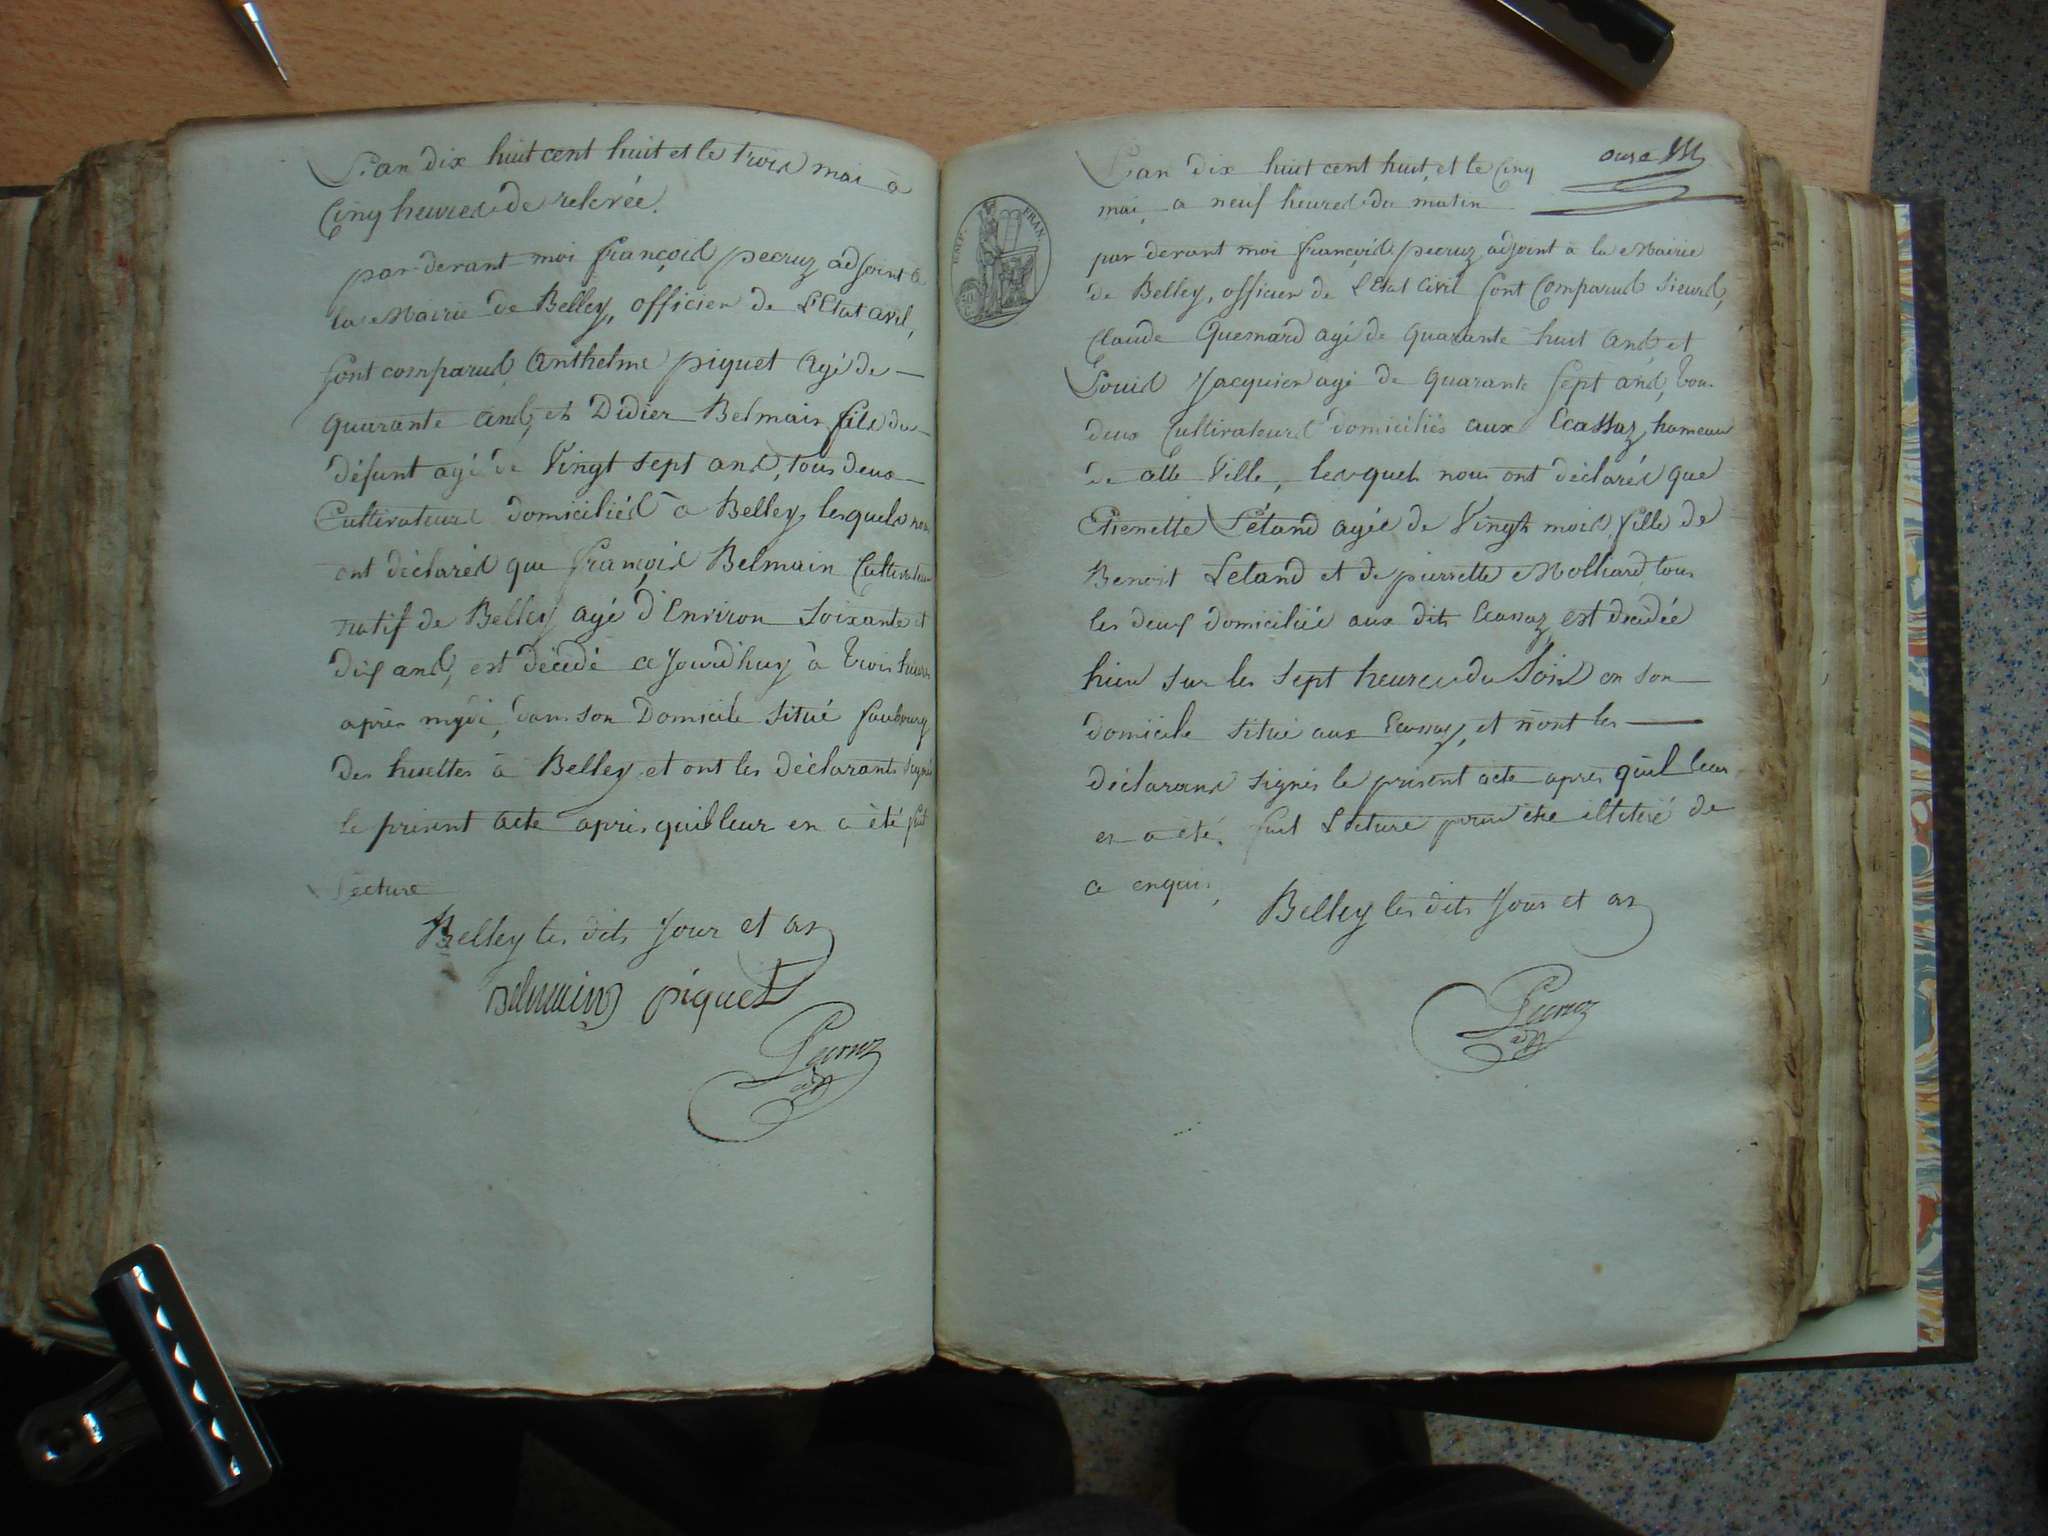 L'an dix huit cent huit et le trois mai à
Cinq heures de relevée.
par devant moi françois pecruz adjoint à
la Mairie de Belley, officier de L'Etat Civil,
sont comparus, Anthelme piquet agé de
quarante ans, et Didier Belmain fils du
défunt agé de Vingt sept ans, tous deux
Cultivateurs domiciliés à Belley, lesquels nous
ont déclarés que françois Belmain Cultivateur
natif de Belley agé d'Environ soixante et
dix ans, est décédé ce jourd'huy à trois heures
après mydi, dans son Domicile situé faubourg
des huettes à Belley, et ont les déclarants signé
le présent acte après quil leur en a été fait
Lecture
Belley les dits jour et an
Belmain piquet
Pecruz
adj
L'an dix huit cent huit, et le Cinq
mai, a neuf heures du matin
EMP. FRAN.
par devant moi françois pecruz adjoint à la Mairie
de Belley, officier de L'Etat Civil sont Comparus Sieurs,
Claude Quemard agé de quarante huit ans, et
Louis Jacquier agé de quarante sept ans, tou
deux Cultivateurs domiciliés aux Ecassaz, hameau
de cette Ville, lesquels nous ont déclarés que
Etiennette Létand agée de Vingt mois, fille de
Benoit Létand et de pierrette Molliard, tous
les deux domiciliés aux dits Ecassaz est décédée
hier sur les sept heures du soir en son
domicile situé aux Ecassaz, et n'ont les
déclarans signés le présent acte après quil leur
en a été fait Lecture pour être illitéré de
ce enquis,
Belley les dits jour et an
Pecruz
adj